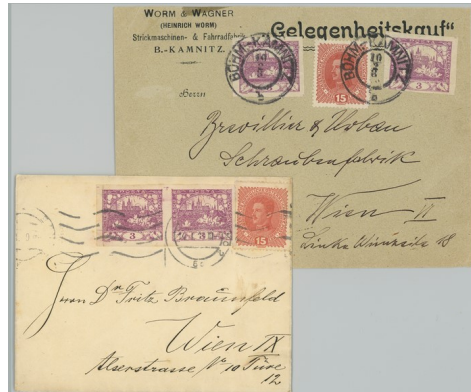 WORM & WAGNER
(HEINRICH WORM)
Strickmaschinen- & Fahrradfabrik
B.-KAMNITZ.
„Gelegenheitskauf“
BÖHM.-KAMNITZ
15
BÖHM.-KAMNITZ
Herrn
Brevillier & Urban
Schraubenfabrik
Wien VI
Linke Wienzeile 18
3
3
15
Herrn Dr Fritz Braunfeld
Wien IX
Alserstrasse No 10 Türe
12